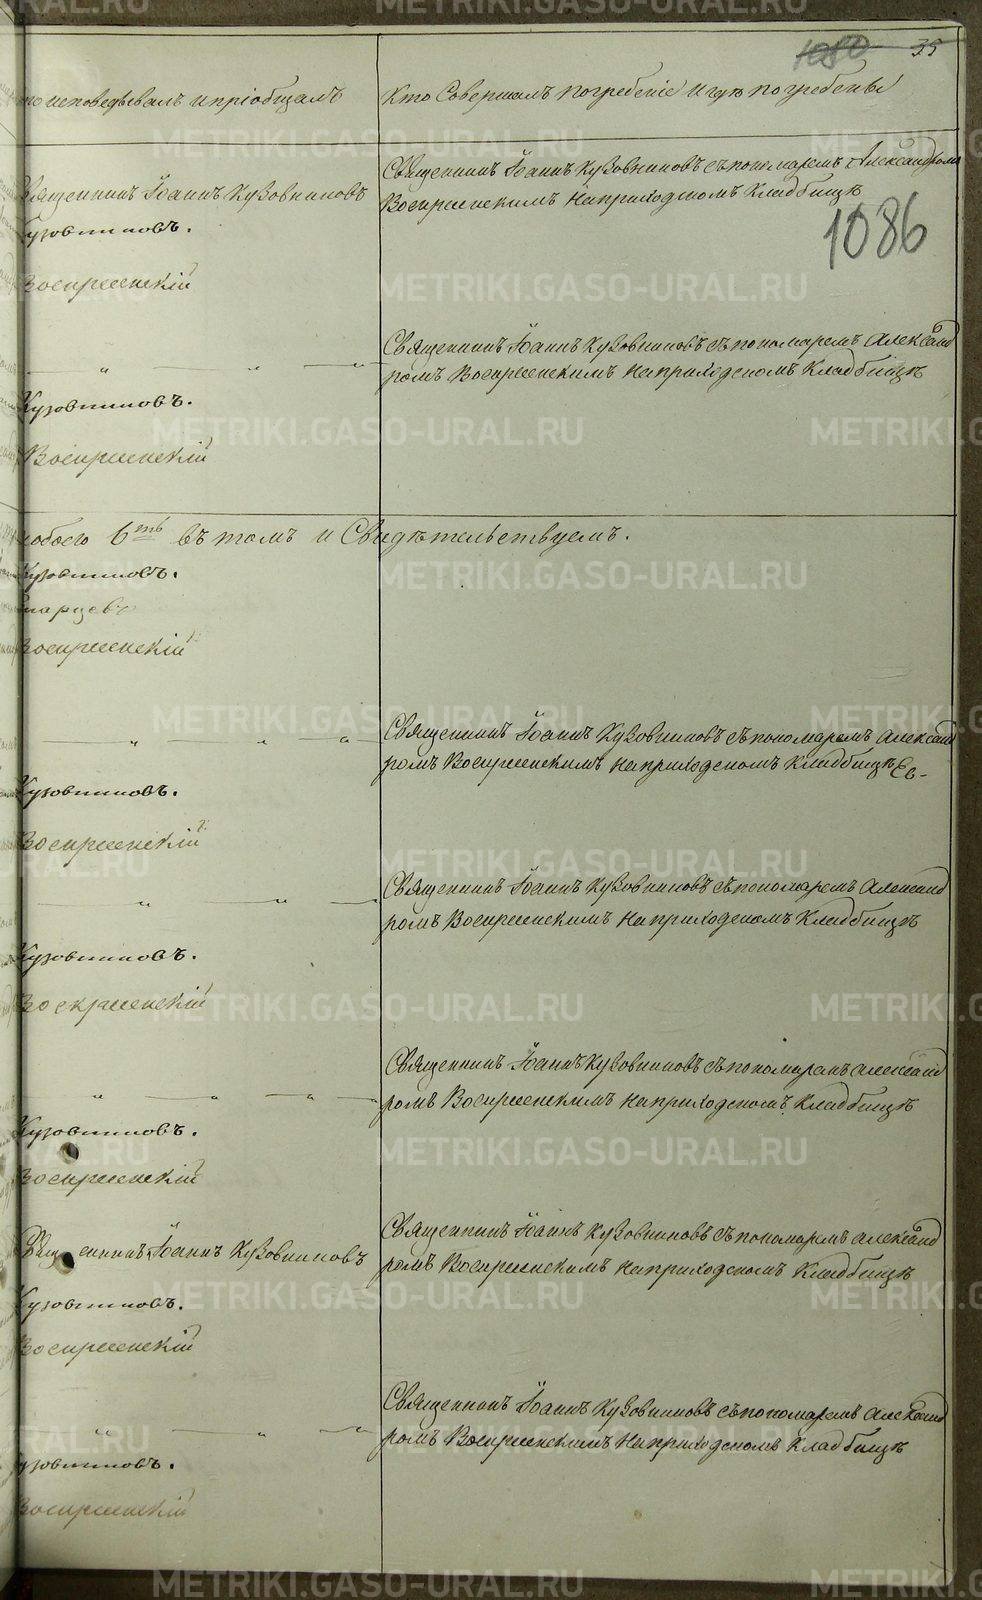 1080 35
исповедывалъ и пріобщалъ
Кто Совершалъ погребеніе и гдѣ погребены
1086
Священникъ Іоаннъ Кузовниковъ
Кузовниковъ.
Воскресенскій
Священникъ Іоаннъ Кузовниковъ съ пономаремъ Александромъ
Воскресенскимъ На приходскомъ Кладбищѣ
Кузовниковъ.
Воскресенскій
Священникъ Іоаннъ Кузовниковъ съ пономаремъ Александ
ромъ Воскресенскимъ На приходскомъ Кладбищѣ
обоего 6ть въ томъ и Свидѣтельствуемъ.
Кузовниковъ.
Воскресенскій
Кузовниковъ.
Воскресенскій
Священникъ Іоаннъ Кузовниковъ съ пономаремъ Александ
ромъ Воскресенскимъ На приходскомъ Кладбищѣ
Кузовниковъ.
Воскресенскій
Священникъ Іоаннъ Кузовниковъ съ пономаремъ Александ
ромъ Воскресенскимъ На приходскомъ Кладбищѣ
Кузовниковъ.
Воскресенскій
Священникъ Іоаннъ Кузовниковъ съ пономаремъ Александ
ромъ Воскресенскимъ На приходскомъ Кладбищѣ
Священникъ Іоаннъ Кузовниковъ
Кузовниковъ.
Воскресенскій
Священникъ Іоаннъ Кузовниковъ съ пономаремъ Александ
ромъ Воскресенскимъ На приходскомъ Кладбищѣ
Кузовниковъ.
Воскресенскій
Священникъ Іоаннъ Кузовниковъ съ пономаремъ Александ
ромъ Воскресенскимъ На приходскомъ Кладбищѣ
METRIKI.GASO-URAL.RU